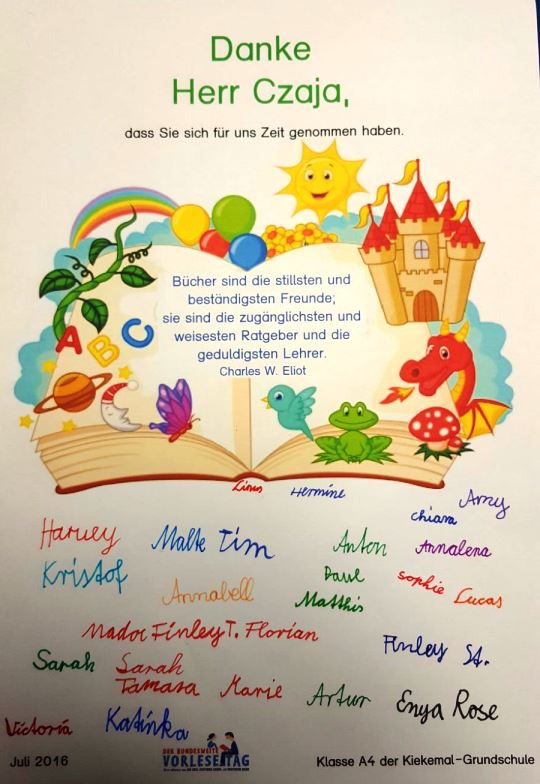 Danke
Herr Czaja,
dass Sie sich für uns Zeit genommen haben.
Bücher sind die stillsten und
beständigsten Freunde;
sie sind die zugänglichsten und
weisesten Ratgeber und die
geduldigsten Lehrer.
Charles W. Eliot
A B C
Linus Hermine Amy
Chiara
Harvey Malte Tim Anton Annalena
Kristof Paul Sophie Lucas
Annabell Matthis
Madoc Finley T. Florian Finley St.
Sarah Sarah
Tamara Marie Artur Enya Rose
Victoria Katinka
DER BUNDESWEITE
VORLESETAG
Juli 2016 Klasse A4 der Kiekemal-Grundschule